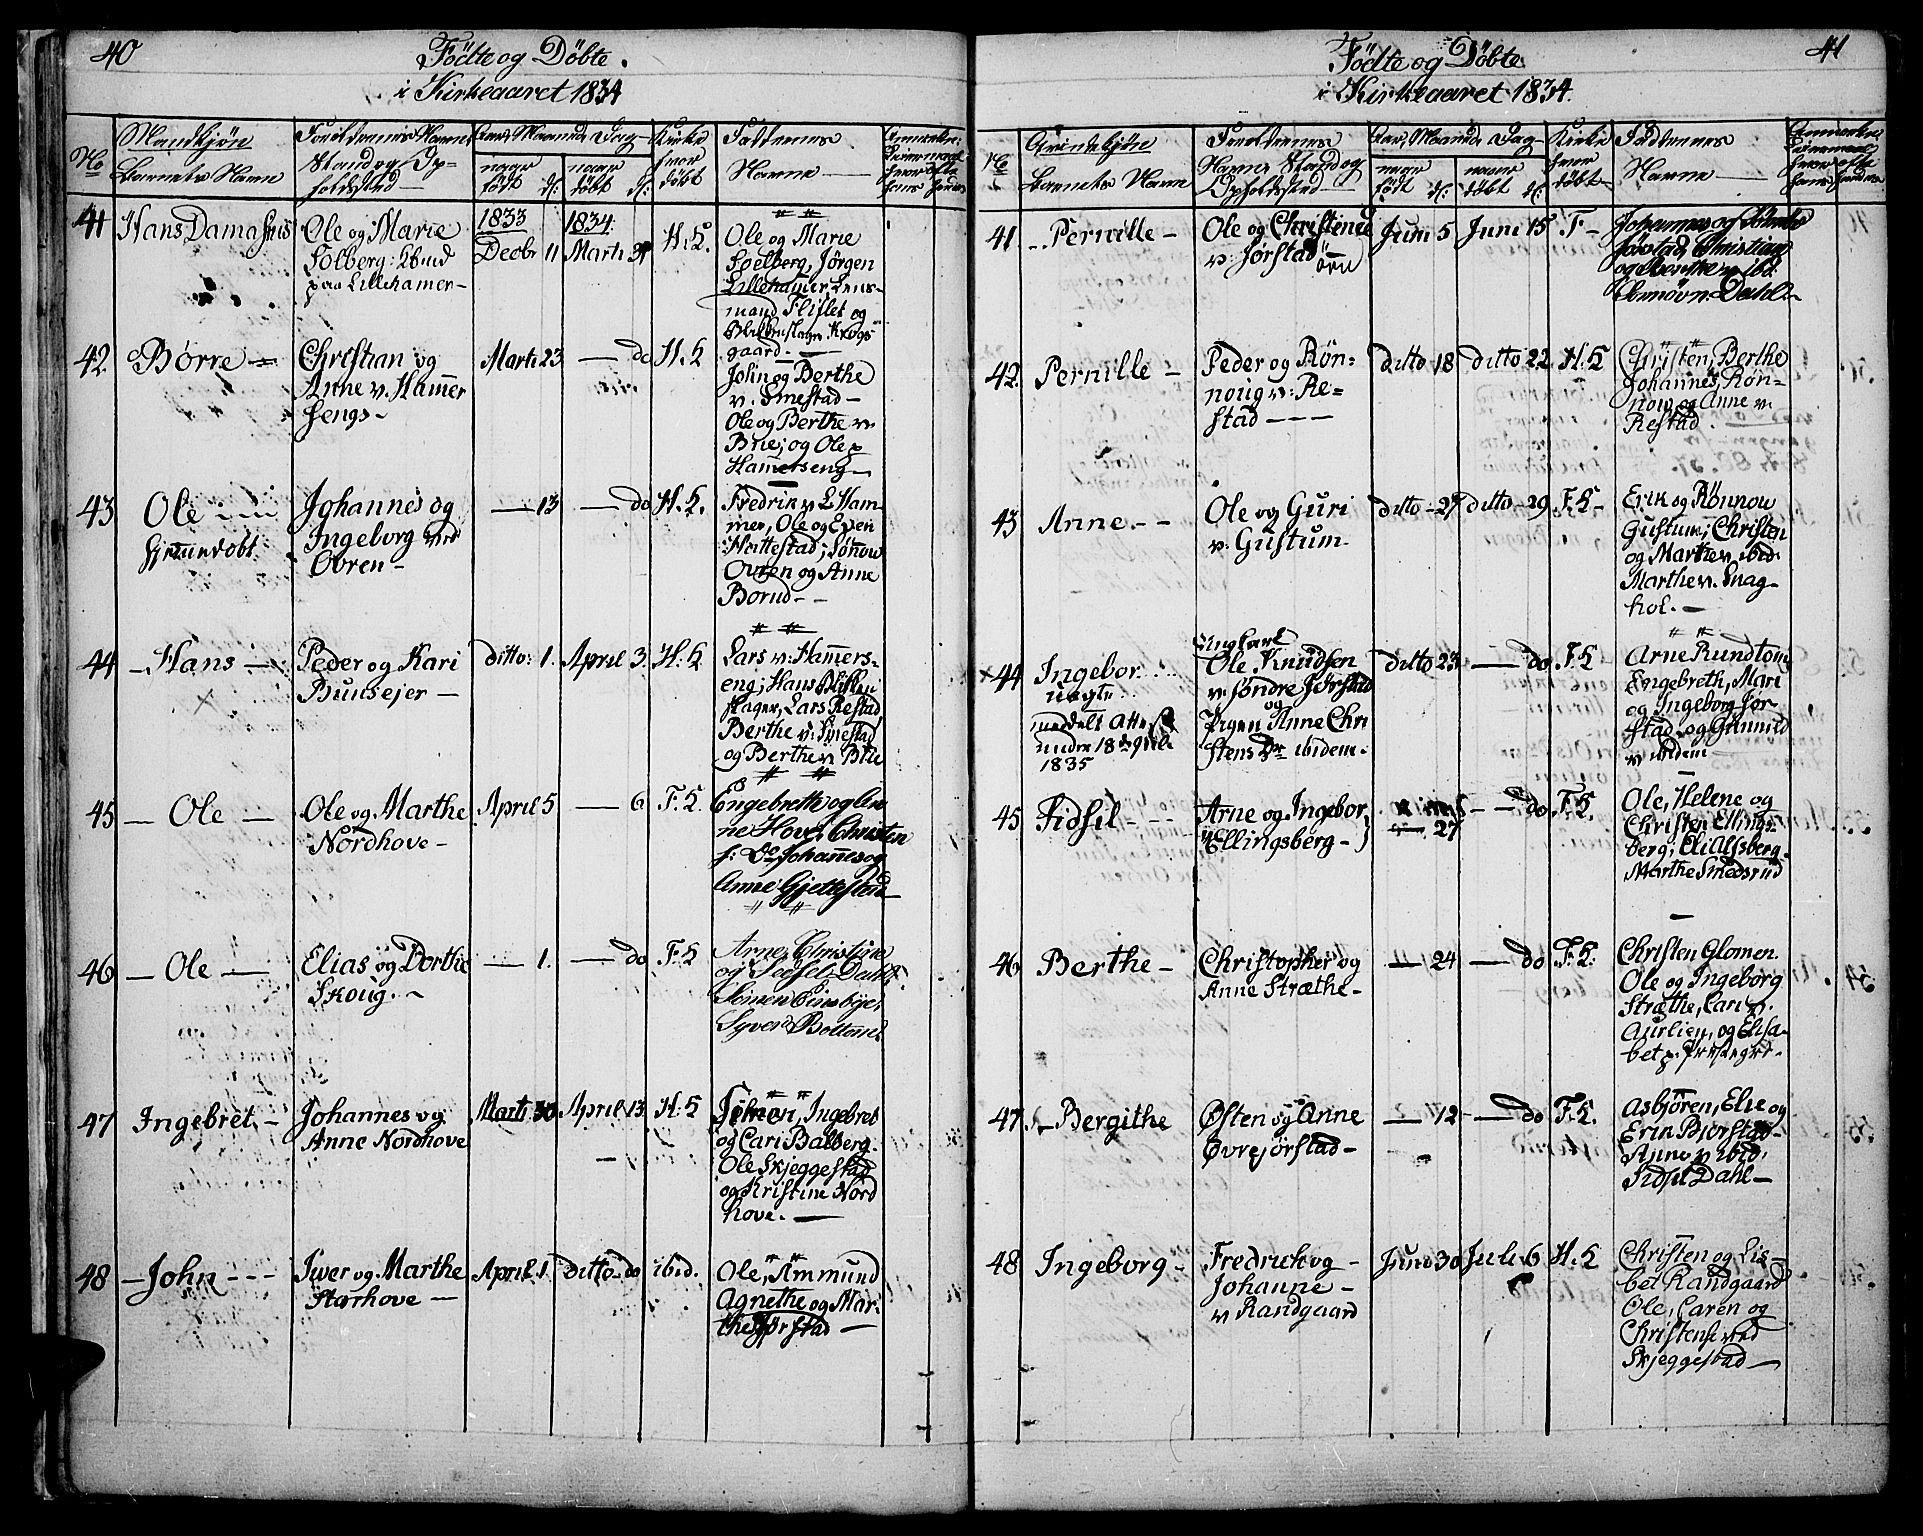 40
Födte og Döbte.
i Kirkeaaret 1834
No
Mandkjön
Barnets Navn
Forældrenes Navne
Stand og Op-
holdsted
Aar, Maaned, Dag
naar födt
naar döbt
Kirke
hvor
döbt
Faddernes
Navne
41
Hans Damasius
Ole og Marie
Solberg
paa Lillehamer
1833
Decbr 11
1834
Marti
H. K.
Ole og Marie
Soelberg, Jörgen
Lillehamer, Lens-
mand Flislet og
gaard
42.
Börre
Christian og
Anne v. Hamer
sengs
Marti 23
do
H. K
John og Berthe
v. Smestad
Ole og Berthe v.
Brie; og Ole p
Hamerseng
43
Ole
hjemmedöbt
Johannes og
Ingeborg ved
Ovren
13
do
H. K.
Fredrik v. L Ham-
mer, Ole og Even
Hattestad; Sönnow
Ovren og Anne
Borud
44
Hans
Peder og Kari
Buusejer
ditto: 1.
April 3.
H: K
Lars v. Hamers-
eng; Hans Blikken
slager, Lars Restad
Berthe v. Smestad
og Berthe v. Brie
45
Ole
Ole og Marthe
Nordhove
April 5
6.
F. K
Engebrette og Ar
ne Hove, Christen
s: Do Johannes og
Anne Gjettestad
46
Ole
Elias og Dorthe
Skoug.
1.
do
F. K
Arne, Christine
og Sidsel Dahl
Simen Einsbye,
Syver Boltomel
47
Ingebret
Johannes og
Anne Nordhove
Marti 30
April 13
H: K
Simen, Ingebret
og Cari Balberg.
Ole Skjeggestad
og Kristine Nord
hove.
48
John
Iwer og Marthe
Storhove
April 1.
ditto do
ibid.
Ole, Ammund
Agnethe og Mar-
the Jörstad
41
Födte og Döbte
i Kirkeaaret 1834.
No
Qvindekjön
Barnets Navn
Forældrenes
Navne Stand og
Opholdsted
Aar, Maaned, Dag
naar födt
naar döbt
Kirke
hvor
döbt
Faddernes
Navne
41
Pernille
Ole og Christense
v. Jörstad
Juni 5
Juni 15
F
Johannes og
Jörstad, Christian
og Berthe v. ibid.
Dahl
42.
Pernille
Peder og Rön-
noug v: Re-
stad
ditto 18
ditto 22
H. K
Christen, Berthe
Johannes, Rön-
now og Anne v.
Restad.
43
Anne
Ole og Guri
v. Gustum
ditto 27
ditto 29
F. K
Erik og Rönnow
Gustum; Christen
og Marthe v. ibid.
Marthe v. Snag-
hol.
44
Ingebor
uægte
meddelt Attest
under 18de
1835
Ungkarl
Ole Knudsen
v. söndre Jörstad
og
Pigen Anne Chri
stens Dr ibidem.
ditto 23
do
F. K
Arne Rundtom
Engebreth, Mari
og Ingeborg Jör-
stad og Gunnild
v ibidem
45
Sidsil
Arne og Ingebor
v Ellingsberg
27
do
F. K.
Ole, Helene og
Christen Ellings-
berg; Eli Alfsberg
Marthe Smedsrud
46
Berthe
Christopher og
Anne Stræthe
24
do
F. K:
Christen Glomen.
Ole og Ingeborg
Stræthe, Cari v.
Aurlien, og Elisa-
bet p. Præstegrd.
47.
Bergithe
Östen og Anne
Övre jörstad
12
do
F. K.
Asbjören, Elie og
Erik Bjorstad
Anne v ibid.
Sidsil Dahl
48
Ingeborg
Fredrick og
Johanne
v Randgaard
Juni 30
Juli 6
H. K
Christen og Lis-
bet Randgaard
Ole, Caren og
Christense ved
Skjeggestad